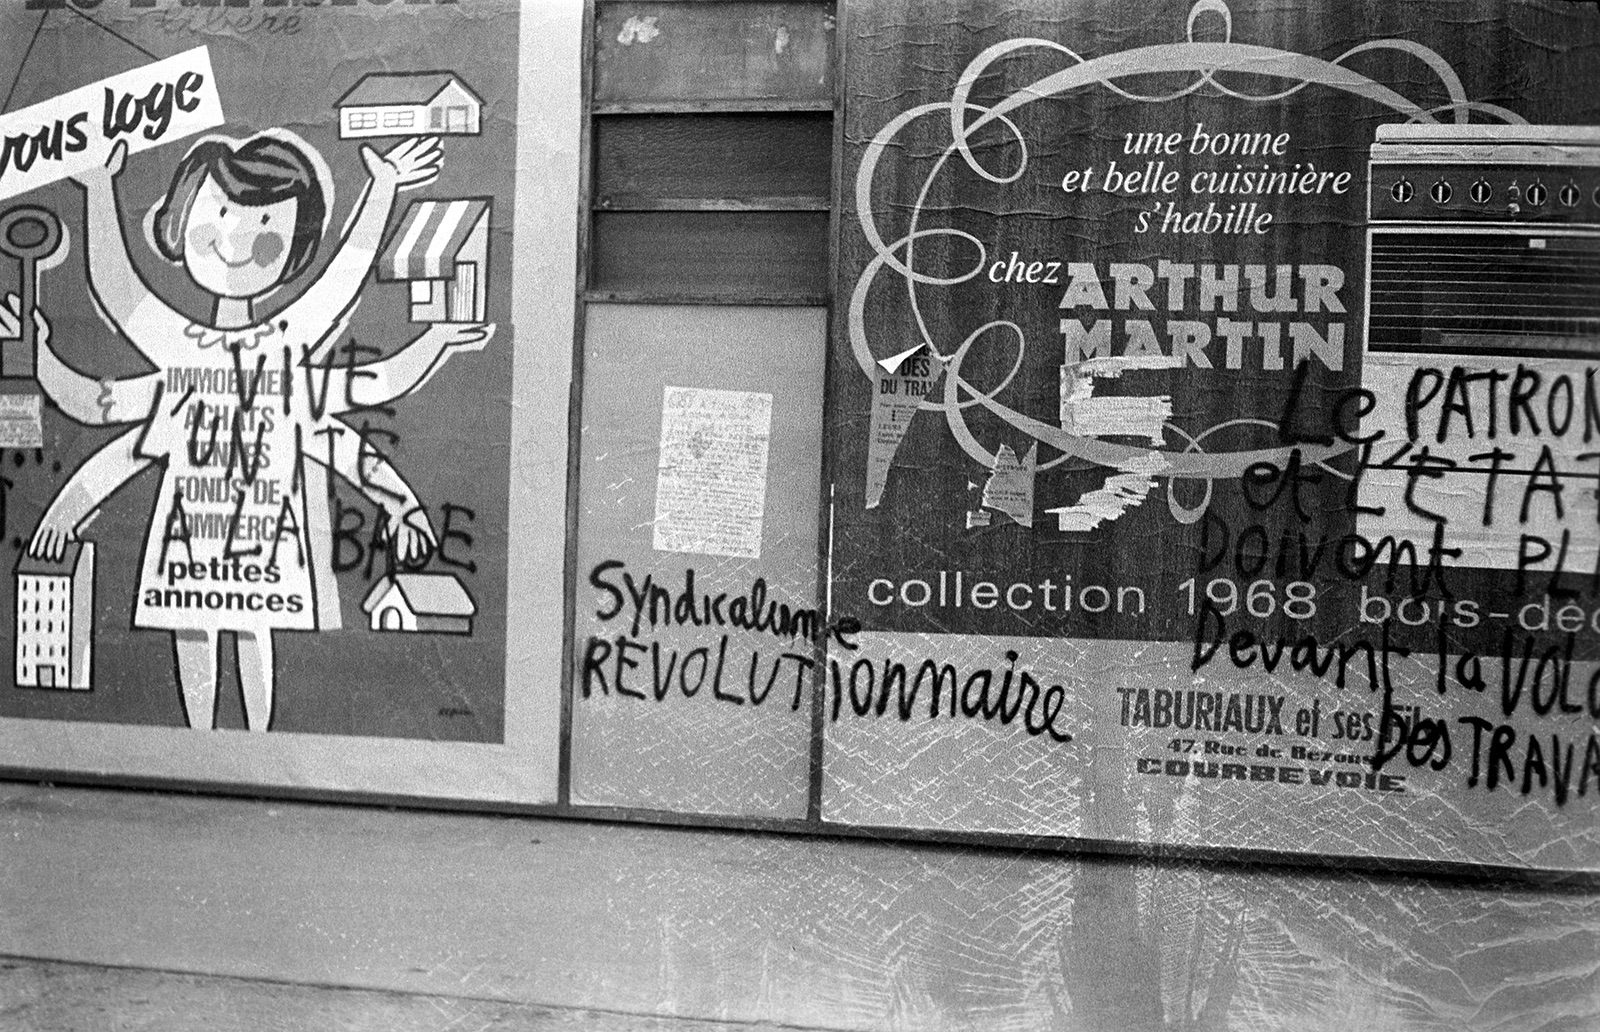 libéré
vous loge
IMMOBILIER
ACHATS
VENTES
FONDS DE
COMMERCE
petites
annonces
VIVE
L'UNITE
A LA BASE
Syndicalisme
REVOLUTionnaire
une bonne
et belle cuisinière
s'habille
chez ARTHUR
MARTIN
DES
DU TRA
collection 1968 bois-déc
TABURIAUX et ses Fils
47, Rue de Bezons
COURBEVOIE
Le PATRON
et L'ETAT
Doivent PLI
Devant la VOLO
Des TRAVA